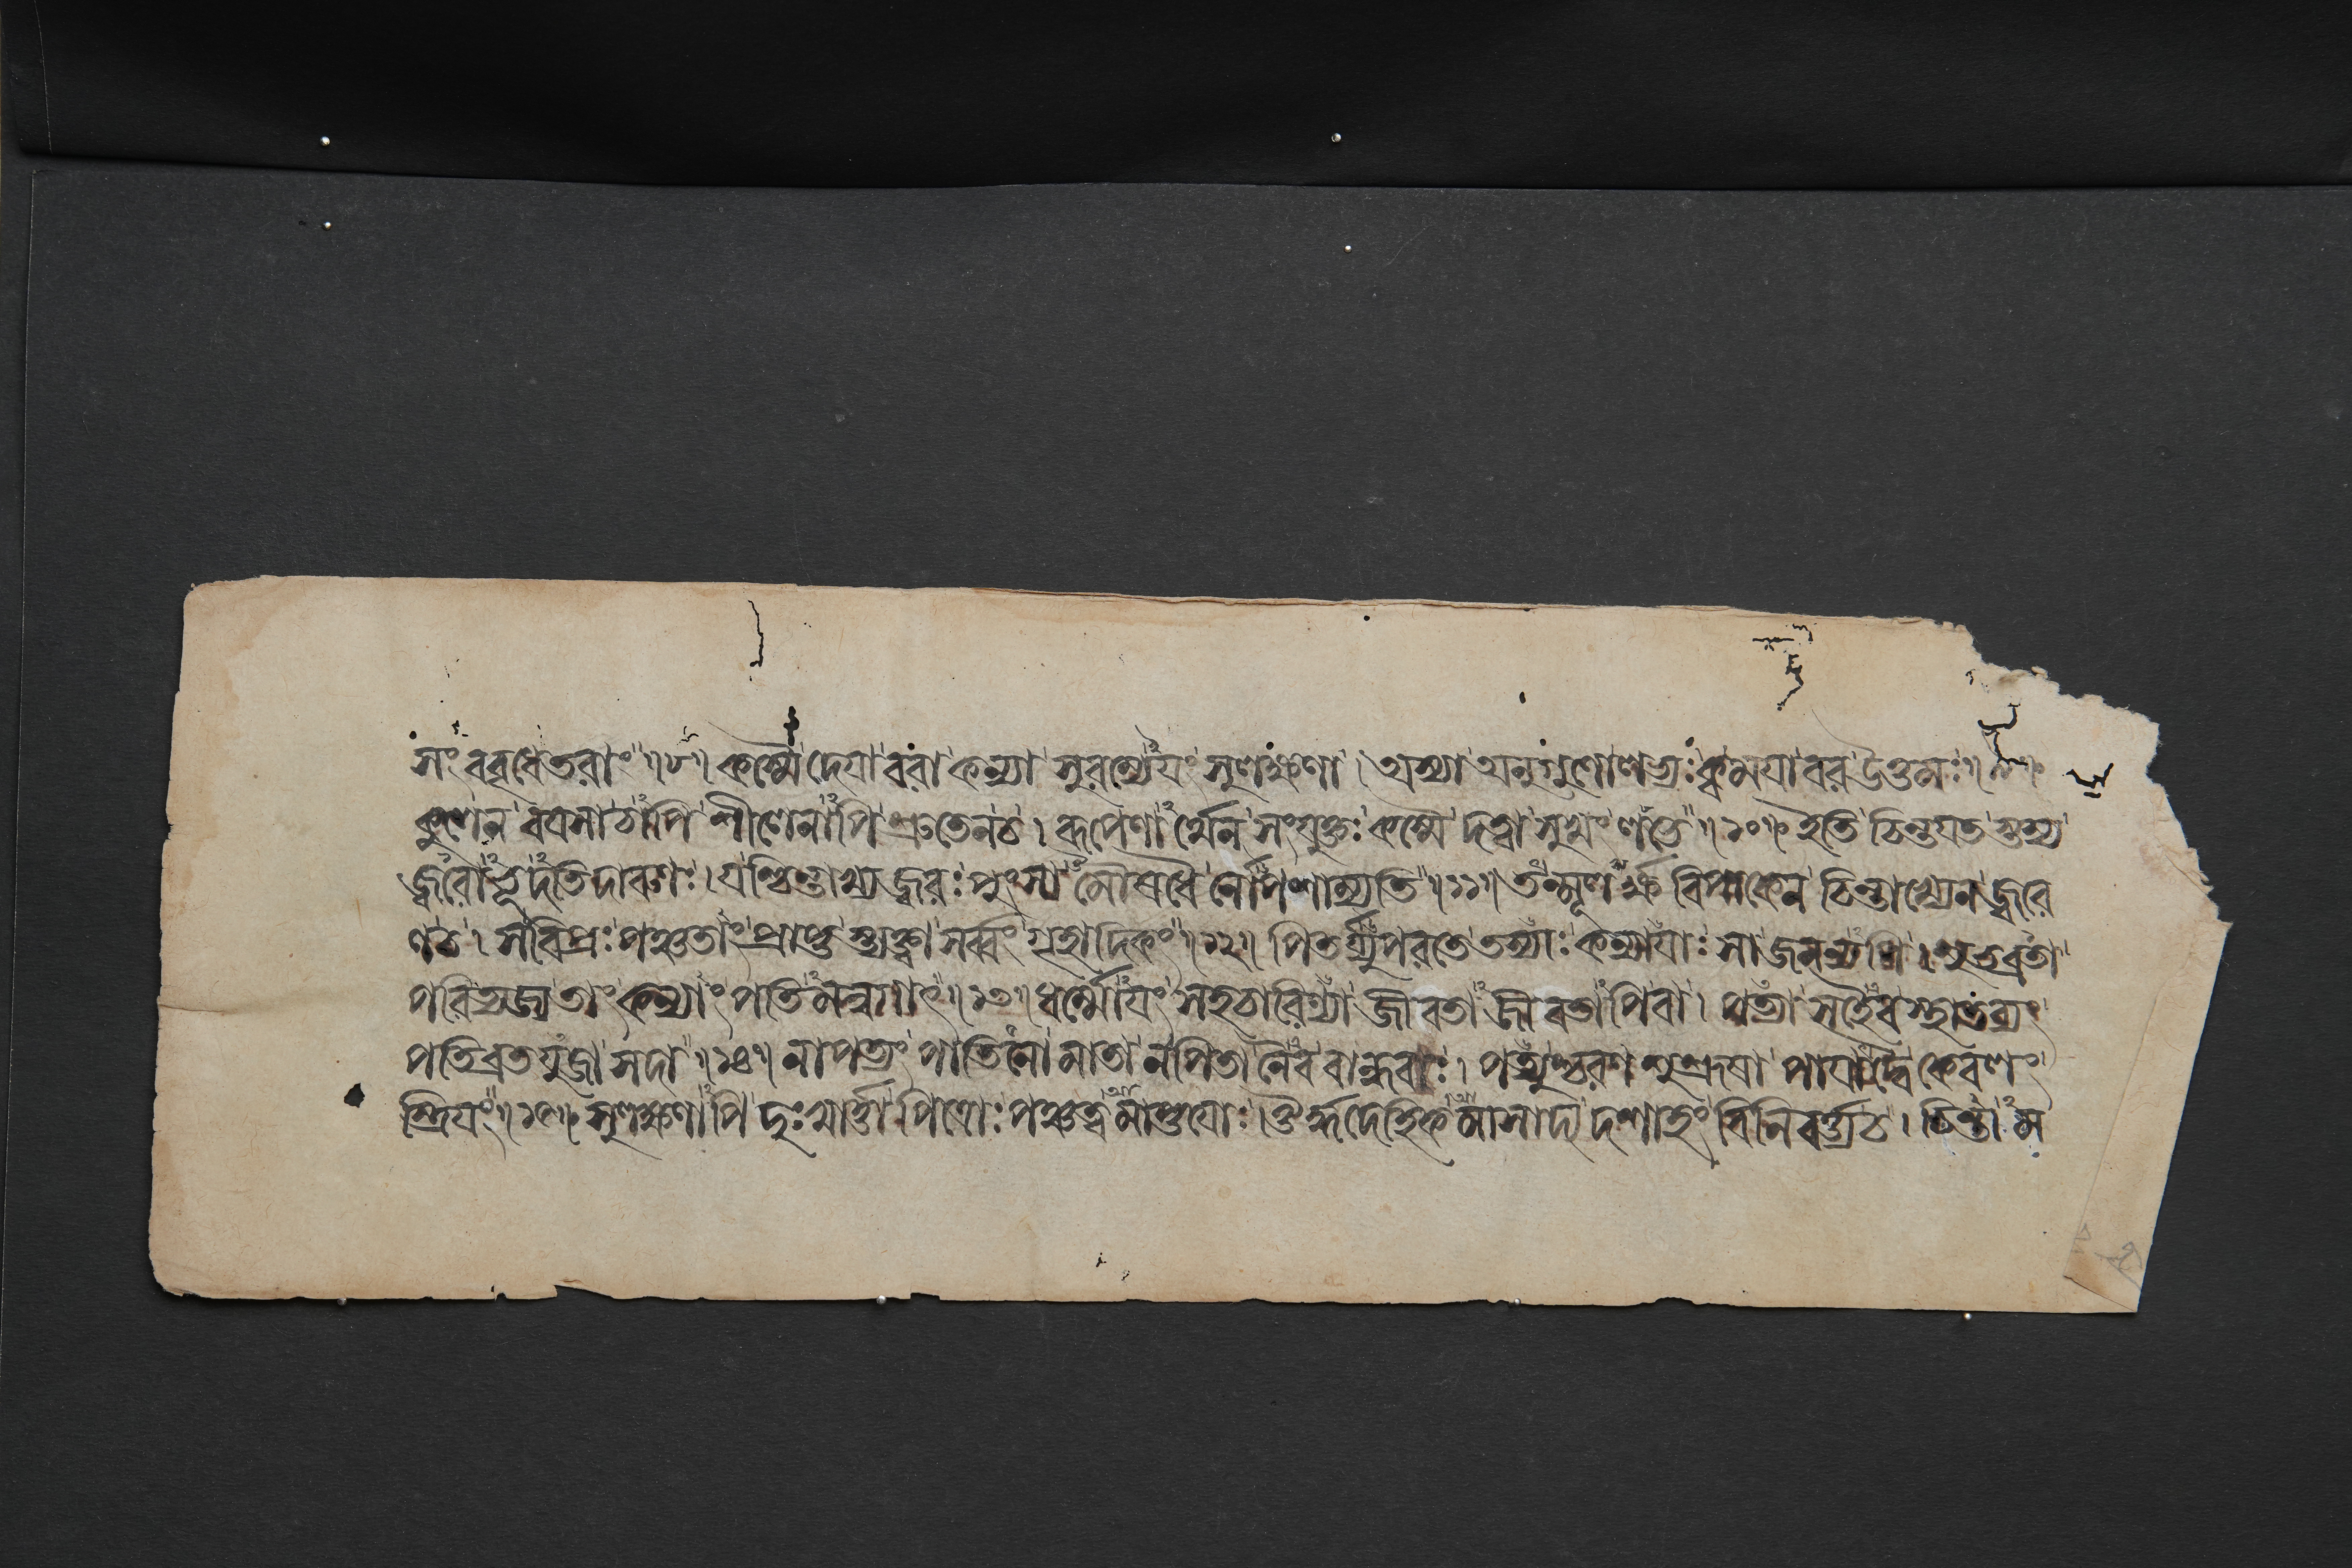 সং ববৃধেতরাং ॥৮॥ কস্মৈ দেয়া বরা কন্যা সুরম্যেয়ং সুলক্ষণা । অস্যা অনুগুণোলভ্যঃ ক্ব ময়া বর উত্তমঃ ॥৯॥
কুলেন বয়সা চাপি শীলেনাপি শ্রুতেনচ । রূপেণার্থেন সংযুক্তঃ কস্মৈ দত্ত্বা সুখং লভে ॥১০॥ ইতি চিন্তয়ত স্তস্য
জ্বরোঽভূদতিদারুণঃ । যশ্চিন্তাখ্য জ্বরঃ পুংসা মৌষধৈ র্নোপশাম্যতি ॥১১॥ তন্মূলর্ক্ষ বিপাকেন চিন্তাখ্যেন জ্বরে
ণচ । সবিপ্রঃ পঞ্চতাং প্রাপ্ত স্ত্যক্ত্বা সর্ব্বং গৃহাদিকং ॥১২॥ পিতর্য্যুপরতে তস্যাঃ কন্যায়াঃ সা জনন্যপি । শুভব্রতা
পরিত্যজ্য তাং কন্যাং পতি মন্বগাৎ ॥১৩॥ ধর্ম্মোয়ং সহচারিণ্যা জীবতা জীবতাপিবা । পত্যা সহৈব স্থাতব্যং
পতিব্রতযুজা সদা ॥১৪॥ নাপত্যং পাতিনো মাতা নপিতা নৈব বান্ধবাঃ । পত্যুশ্চরণ শুশ্রূষা পায়াদ্বৈ কেবলং
স্ত্রিয়ং ॥১৫॥ সুলক্ষণাপি দুঃখার্ত্তা পিত্রোঃ পঞ্চত্ব মাপ্তয়োঃ । ঔর্দ্ধদেহিক মাসাদ্য দশাহং বিনিবর্ত্ত্যচ । চিন্তা ম